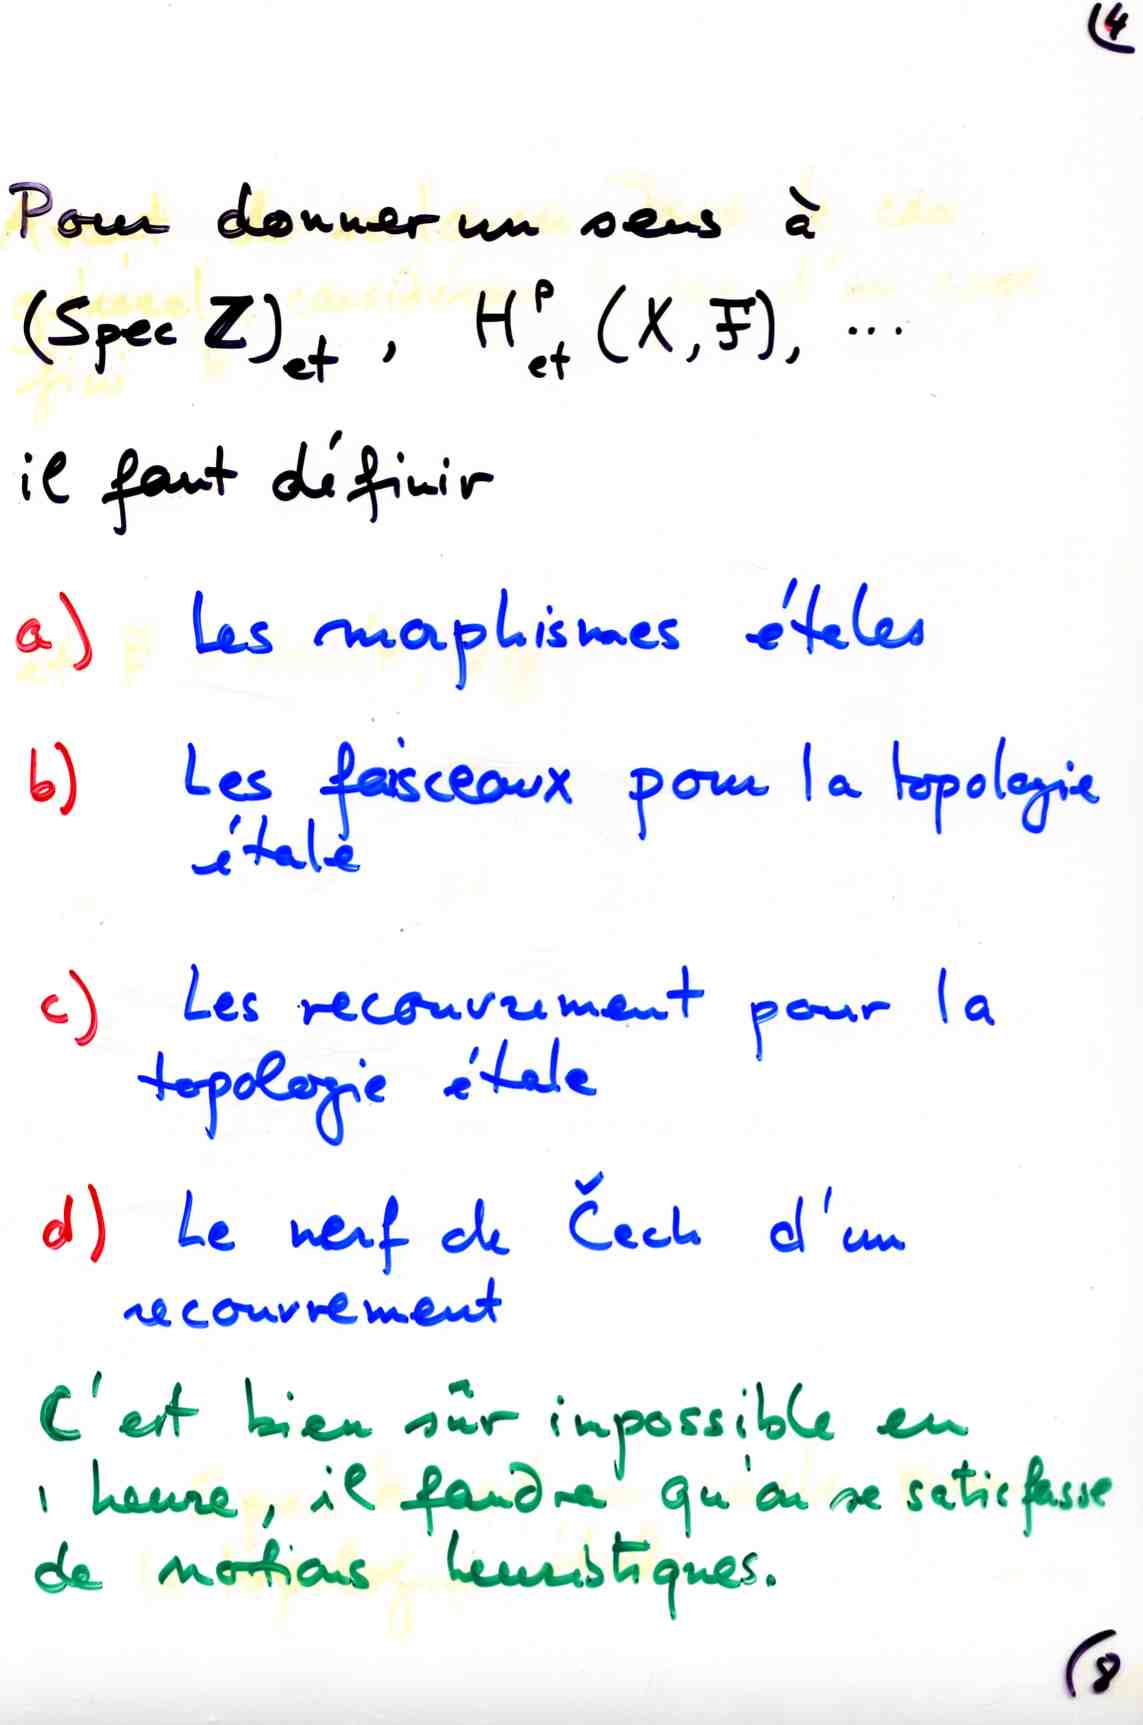 (4
Pour donner un sens à
(Spec ℤ)_et , H^p_et (X, F), ...
il faut définir
a) Les morphismes étales
b) Les faisceaux pour la topologie
étale
c) Les recouvrement pour la
topologie étale
d) Le nerf de Čech d'un
recouvrement
C'est bien sûr impossible en
1 heure, il faudra qu'on se satisfasse
de notions heuristiques.
(8